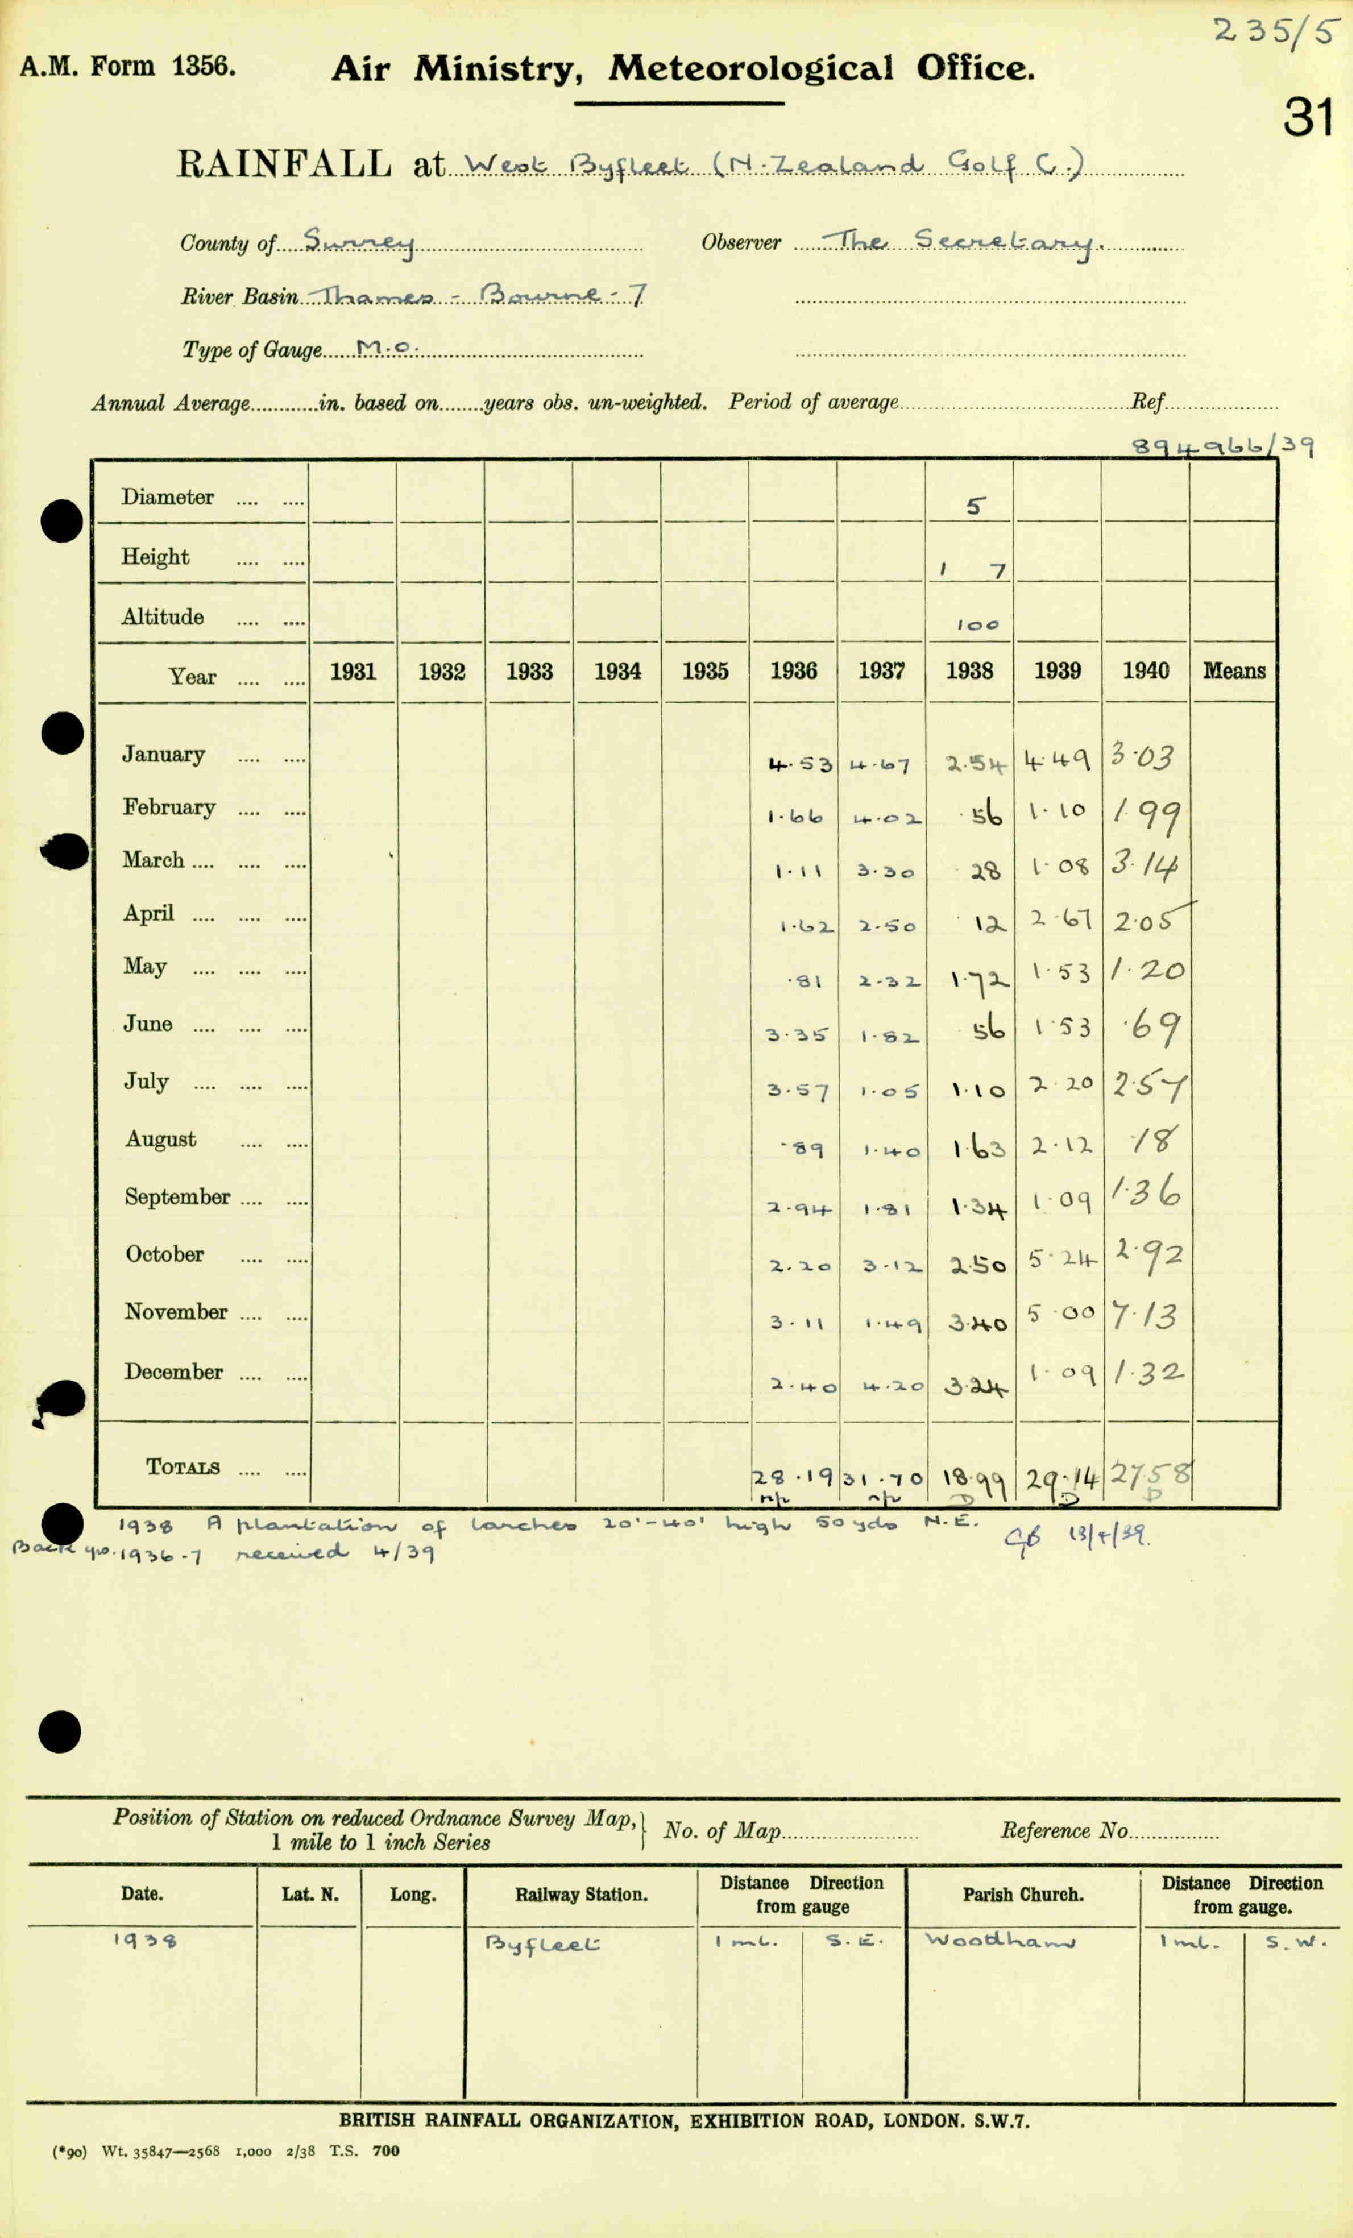 235/5
A.M. Form 1356. Air Ministry, Meteorological Office.
31
RAINFALL at West Byfleet (N. Zealand Golf C.)
County of Surrey Observer The Secretary.
River Basin Thames - Bourne - 7
Type of Gauge M.O.
Annual Average............in. based on........years obs. un-weighted. Period of average.......... Ref..........
894966/39
Diameter .... .... 5
Height .... .... 1 7
Altitude .... .... 100
Year .... .... 1931 1932 1933 1934 1935 1936 1937 1938 1939 1940 Means
January .... .... 4.53 4.67 2.54 4.49 3.03
February .... .... 1.66 4.02 .56 1.10 1.99
March .... .... .... 1.11 3.30 .28 1.08 3.14
April .... .... .... 1.62 2.50 .12 2.67 2.05
May .... .... .... .81 2.32 1.72 1.53 1.20
June .... .... .... 3.35 1.82 .56 1.53 .69
July .... .... .... 3.57 1.05 1.10 2.20 2.57
August .... .... .89 1.40 1.63 2.12 .18
September .... .... 2.94 1.81 1.34 1.09 1.36
October .... .... 2.20 3.12 2.50 5.24 2.92
November .... .... 3.11 1.49 3.40 5.00 7.13
December .... .... 2.40 4.20 3.24 1.09 1.32
TOTALS .... .... 28.19 31.70 18.99 29.14 27.58
np np D D D
1938 A plantation of larches 20'-40' high 50 yds N.E.
Back yrs. 1936-7 received 4/39 GB 13/4/39.
Position of Station on reduced Ordnance Survey Map,
1 mile to 1 inch Series
No. of Map.......... Reference No..........
Date. Lat. N. Long. Railway Station. Distance Direction from gauge Parish Church. Distance Direction from gauge.
1938 Byfleet 1 ml. S.E. Woodham 1 ml. S.W.
BRITISH RAINFALL ORGANIZATION, EXHIBITION ROAD, LONDON. S.W.7.
(*90) Wt. 35847—2568 1,000 2/38 T.S. 700